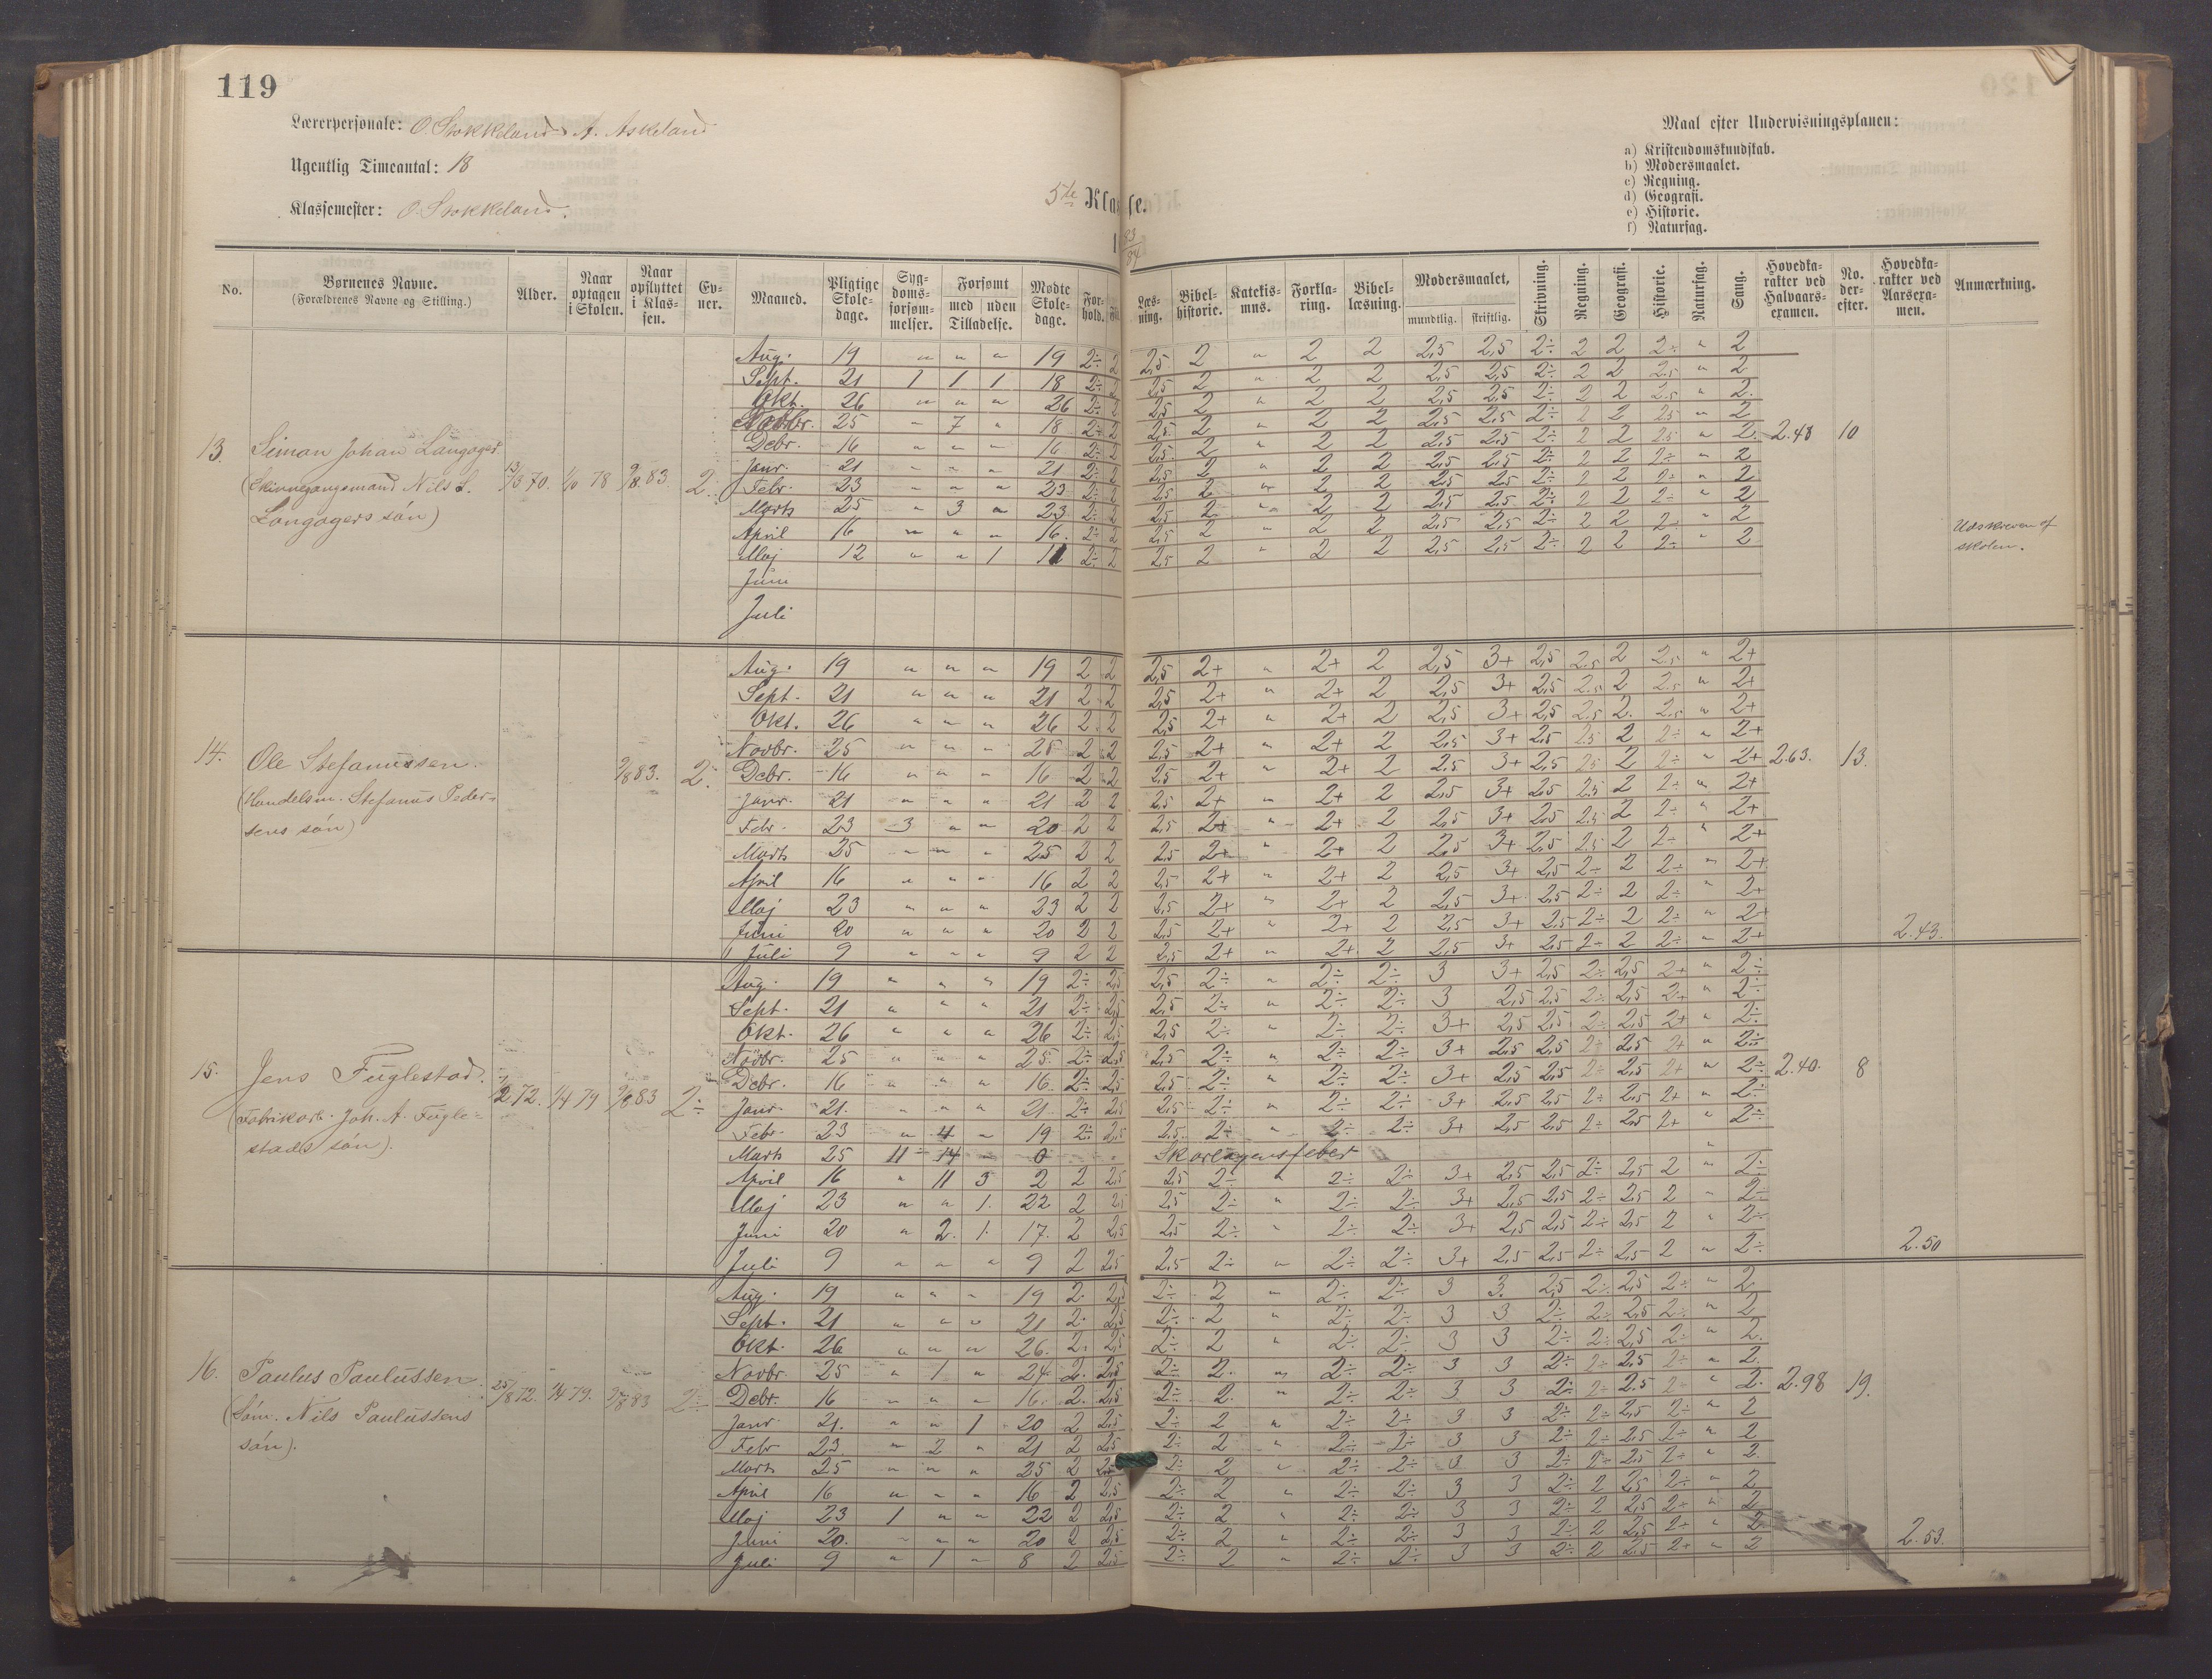 119
Lærerpersonale: O. Stokkeland A. Askeland
Ugentlig Timeantal: 18
Klassemester: O. Stokkeland.
5te Klasse.
83/84
Maal efter Undervisningsplanen:
a) Kristendomskundskab.
b) Modersmaalet.
c) Regning.
d) Geografi.
e) Historie.
f) Naturfag.
No. Børnenes Navne. (Forældrenes Navne og Stilling.) Alder. Naar optagen i Skolen. Naar opflyttet i Klassen. Evner. Maaned. Pligtige Skoledage. Sygdomsforsømmelser. Forsømt med uden Tilladelse. Mødte Skoledage. Forhold. Læsning. Bibelhistorie. Katekismus. Forklaring. Bibellæsning. Modersmaalet, mundtlig. skriftlig. Skrivning. Regning. Geografi. Historie. Naturfag. Sang. Hovedkarakter ved Halvaarsexamen. No. derefter. Hovedkarakter ved Aarsexamen. Anmærkning.
Aug. 19 " " " 19 2÷ 2 2,5 2 " 2 2 2,5 2,5 2÷ 2 2 2÷ " 2
Sept. 21 1 1 1 18 2÷ 2 2,5 2 " 2 2 2,5 2,5 2÷ 2 2 2.5 " 2
Okt. 26 " " " 26 2÷ 2 2,5 2 " 2 2 2,5 2,5 2÷ 2 2 2.5 " 2
Novbr. 25 " 7 " 18 2÷ 2 2,5 2 " 2 2 2,5 2,5 2÷ 2 2 2.5 " 2
Debr. 16 " " " 16 2÷ 2 2,5 2 " 2 2 2,5 2,5 2÷ 2 2 2.5 " 2 2.43 10
13. Simon Johan Langager
Janr. 21 " " " 21 2÷ 2 2,5 2 " 2 2 2,5 2,5 2÷ 2 2 2÷ " 2
( Nils L. 13/3 70. 78 9/8 83. 2.
Febr. 23 " " " 23 2÷ 2 2,5 2 " 2 2 2,5 2,5 2÷ 2 2 2÷ " 2
Marts 25 " 3 " 23 2÷ 2 2,5 2 " 2 2 2,5 2,5 2÷ 2 2 2÷ " 2
Langagers søn)
April 16 " " " 16. 2÷ 2 2,5 2 " 2 2 2,5 2,5 2÷ 2 2 2÷ " 2
Udskreven af skolen.
Maj 12 " " 1 11 2÷ 2 2,5 2 " 2 2 2,5 2,5 2÷ 2 2 2÷ " 2
Juni
Juli
Aug. 19 " " " 19 2 2 2,5 2+ " 2+ 2 2,5 3+ 2,5 2.5 2 2.5 " 2+
Sept. 21 " " " 21 2 2 2,5 2+ " 2+ 2 2,5 3+ 2,5 2.5 2 2.5 " 2+
Okt. 26 " " " 26 2 2 2,5 2+ " 2+ 2 2,5 3+ 2,5 2.5 2 2.5 " 2+
Novbr. 25 " " " 25 2 2 2,5 2+ " 2+ 2 2,5 3+ 2,5 2.5 2 2÷ " 2+
14. Ole Stefanussen. 9/8 83. 2÷
Debr. 16 " " " 16 2 2 2,5 2+ " 2+ 2 2,5 3+ 2,5 2.5 2 2÷ " 2+ 2.63. 13.
(Handelsm. Stefanus Peder-
Janr. 21 " " " 21 2 2 2,5 2+ " 2+ 2 2,5 3+ 2,5 2.5 2 2÷ " 2+
sens søn)
Febr. 23 3 " " 20 2 2 2,5 2+ " 2+ 2 2,5 3+ 2,5 2.5 2 2÷ " 2+
Marts 25 " " " 25 2 2 2,5 2+ " 2+ 2 2,5 3+ 2,5 2.5 2 2÷ " 2+
April 16 " " " 16 2 2 2,5 2+ " 2+ 2 2,5 3+ 2,5 2÷ 2 2÷ " 2+
Maj 23 " " " 23 2 2 2,5 2+ " 2+ 2 2,5 3+ 2,5 2÷ 2 2÷ " 2+
Juni 20 " " " 20 2 2 2,5 2+ " 2+ 2 2,5 3+ 2,5 2÷ 2 2÷ " 2+ 2.43.
Juli 9 " " " 9 2 2 2,5 2+ " 2+ 2 2,5 3+ 2,5 2÷ 2 2÷ " 2+
Aug. 19 " " " 19 2÷ 2,5 2,5 2÷ " 2÷ 2÷ 3 3+ 2,5 2÷ 2,5 2+ " 2÷
Sept. 21 " " " 21 2÷ 2,5 2,5 2÷ " 2÷ 2÷ 3 2,5 2,5 2÷ 2,5 2+ " 2÷
Okt. 26 " " " 26 2÷ 2,5 2,5 2÷ " 2÷ 2÷ 3+ 2,5 2,5 2÷ 2,5 2+ " 2÷
Novbr. 25 " " " 25 2÷ 2,5 2,5 2÷ " 2÷ 2÷ 3+ 2,5 2,5 2÷ 2,5 2+ " 2÷
15. Jens Fuglestad. 2/1 72. 1/4 79 9/8 83 2÷
Debr. 16 " " " 16. 2÷ 2,5 2,5 2÷ " 2÷ 2÷ 3+ 2,5 2,5 2÷ 2,5 2+ " 2÷ 2.40. 8
(Fabrikarb. Joh. A. Fugle-
Janr. 21. " " " 21 2÷ 2,5 2,5 2÷ " 2÷ 2÷ 3+ 2,5 2,5 2÷ 2,5 2+ " 2÷
stads søn).
Febr. 23 " 4 " 19 2÷ 2,5 2,5 2÷ " 2÷ 2÷ 3+ 2,5 2,5 2÷ 2,5 2+ " 2÷
Marts 25 11 14 " 0 " Skarlagensfeber "
April 16 " 11 3 2 2 2,5 2,5 2÷ " 2÷ 2÷ 3+ 2,5 2,5 2÷ 2,5 2 " 2÷
Maj 23 " " 1. 22 2 2,5 2,5 2÷ " 2÷ 2÷ 3+ 2,5 2,5 2÷ 2,5 2 " 2÷
Juni 20 " 2. 1. 17. 2 2,5 2,5 2÷ " 2÷ 2÷ 3+ 2,5 2,5 2÷ 2,5 2 " 2÷ 2.50
Juli 9 " " " 9 2 2,5 2,5 2÷ " 2÷ 2÷ 3+ 2,5 2,5 2÷ 2,5 2 " 2÷
Aug. 19 " " " 19 2. 2,5 2÷ 2 " 2÷ 2÷ 3 3. 2,5 2÷ 2,5 2÷ " 2
Sept. 21 " " " 21 2. 2,5 2÷ 2 " 2÷ 2÷ 3 3 2÷ 2÷ 2,5 2÷ " 2
Okt. 26 " " " 26. 2. 2,5 2÷ 2 " 2÷ 2÷ 3 3 2÷ 2÷ 2,5 2÷ " 2.
Novbr. 25 " 1 " 24. 2. 2,5 2÷ 2. " 2÷ 2÷ 3 3 2÷ 2÷ 2,5 2÷ " 2.
16. Paulus Paulussen. 25/8 72. 1/4 79. 83 2÷
Debr. 16 " " " 16. 2. 2,5 2÷ 2. " 2÷ 2÷ 3 3 2÷ 2÷ 2.5 2÷ " 2. 2.98 19.
(Søm. Nils Paulussens
Janr. 21. " " 1 20 2 2,5 2÷ 2 " 2÷ 2÷ 3 3 2÷ 2÷ 2,5 2÷ " 2
søn).
Febr 23 " 2 " 21 2 2,5 2÷ 2 " 2÷ 2÷ 3 3 2÷ 2÷ 2.5 2÷ " 2
Marts 25 " " " 25 2 2,5 2÷ 2 " 2÷ 2÷ 3 3 2÷ 2÷ 2.5 2÷ " 2.
April 16 " " " 16 2 2,5 2÷ 2 " 2÷ 2÷ 3 3 2÷ 2 2,5 2÷ " 2
Maj 23 1 " " 22 2 2,5 2÷ 2 " 2÷ 2÷ 3 3 2÷ 2 2,5 2+ " 2
Juni 20. " " " 20 2 2,5 2÷ 2 " 2÷ 2÷ 3 3 2÷ 2 2,5 2+ " 2 2.53.
Juli 9 " 1 " 8 2 2,5 2÷ 2 " 2÷ 2÷ 3 3 2÷ 2 2,5 2+ " 2